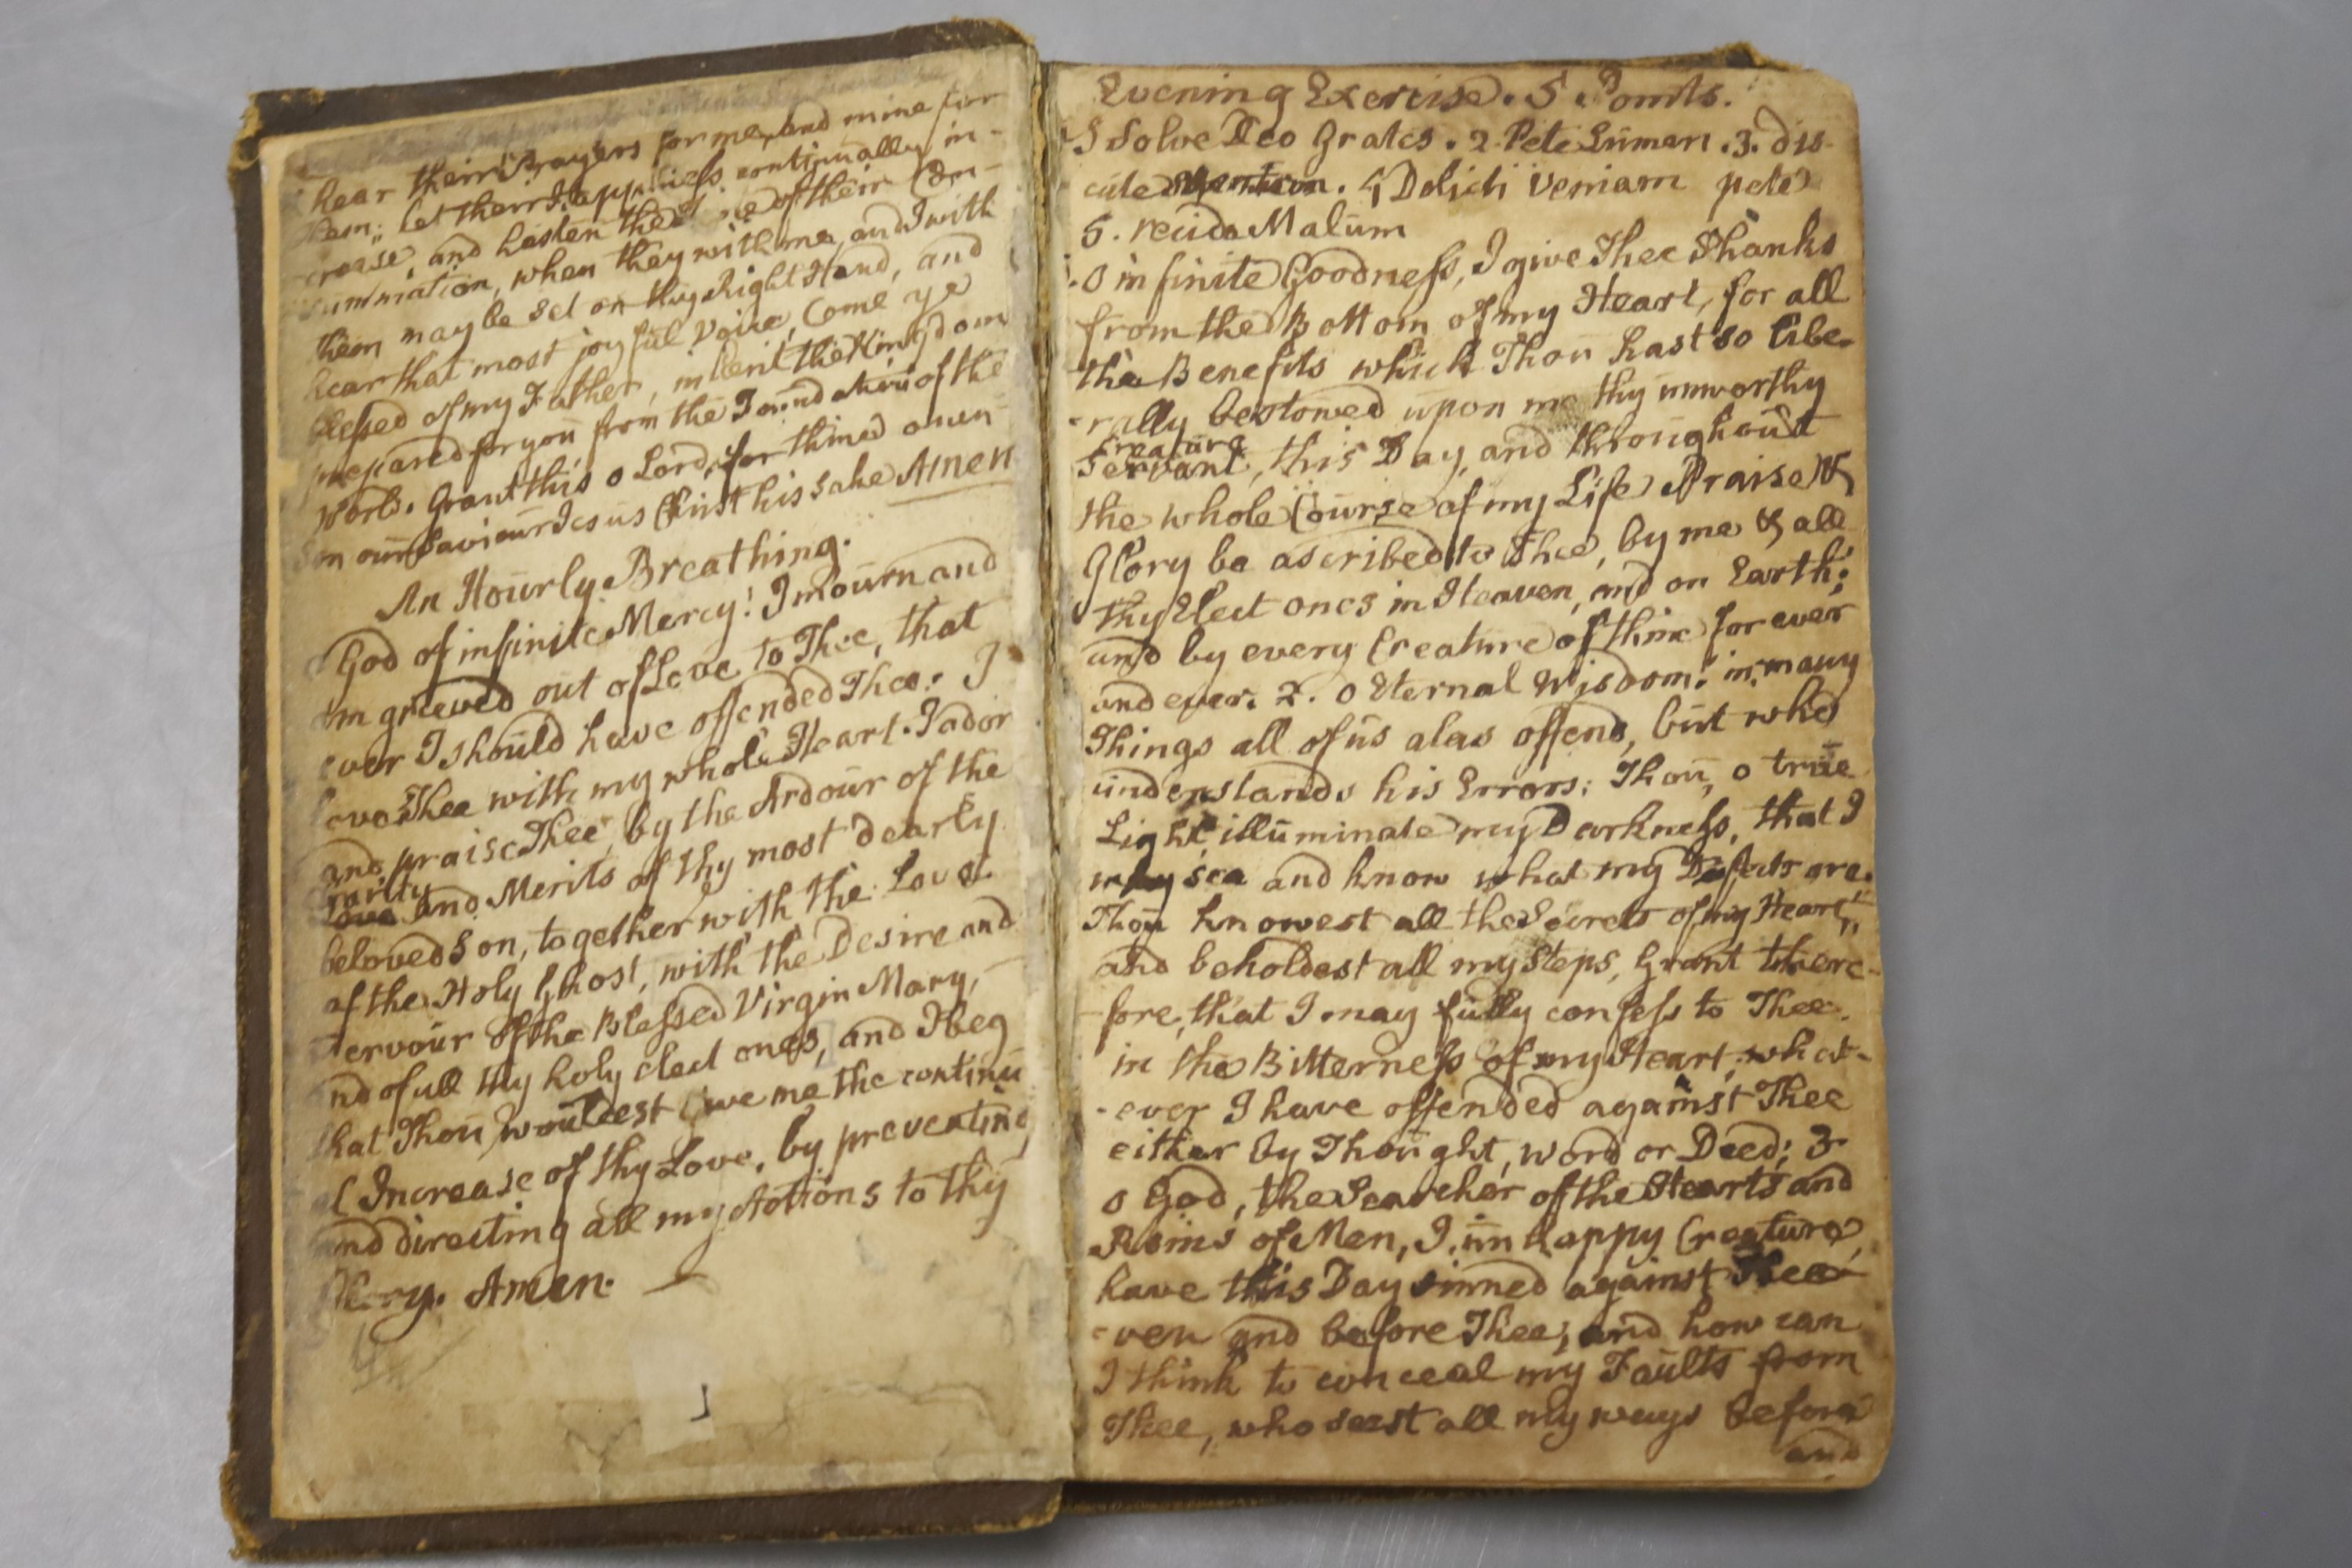 hear their Prayers for me, and mine for
them; let their Happiness continually in-
-crease, and hasten the of their Con-
-summation, when they with me, and I with
them may be set on thy Right Hand, and
hear that most joyful Voice, Come ye
blessed of my Father, inherit the Kingdom
prepared for you from the Foundation of the
World. Grant this o Lord, for thine own
Son our Saviour Jesus Christ his sake Amen
An Hourly Breathing.
God of infinite Mercy! I mourn and
am grieved out of Love to Thee, that
ever I should have offended Thee. I
love Thee with my whole Heart. I ador
and praise Thee, by the Ardour of the
Love and Merits of thy most dearly
beloved Son, together with the Love
of the Holy Ghost, with the Desire and
Fervour of the Blessed Virgin Mary,
and of all thy holy elect ones, and I beg
that Thou wouldest give me the continu
al Increase of thy Love, by preventing
and directing all my Actions to thy
Glory. Amen.
Evening Exercise. 5 Points.
I Solve Deo Grates. 2 Pete Lumen. 3. dis-
cute. 4 Delicti Veniam pete
5. recide Malum
1. O infinite Goodness, I give Thee Thanks
from the Bottom of my Heart, for all
the Benefits which Thou hast so libe-
-rally bestowed upon me thy unworthy
Creature
Servant, this Day, and throughout
the whole Course of my Life Praise &
Glory be ascribed to Thee, by me & all
thy Elect ones in Heaven, and on Earth;
and by every Creature of thine for ever
and ever. 2. O Eternal Wisdom! in many
Things all of us alas offend, but who
understands his Errors; Thou, o true
Light, illuminate my Darkness, that I
may see and know what my Defects are.
Thou knowest all the Secrets of my Heart,
and beholdest all my Steps, Grant there-
-fore, that I may fully confess to Thee
in the Bitterness of my Heart, what-
-ever I have offended against Thee
either by Thought, word or Deed; 3.
o God, the Searcher of the Hearts and
Reins of Men, I, unhappy Creature,
have this Day sinned against Hea-
-ven and before Thee; and how can
I think to conceal my Faults from
Thee, who seest all my ways before
and